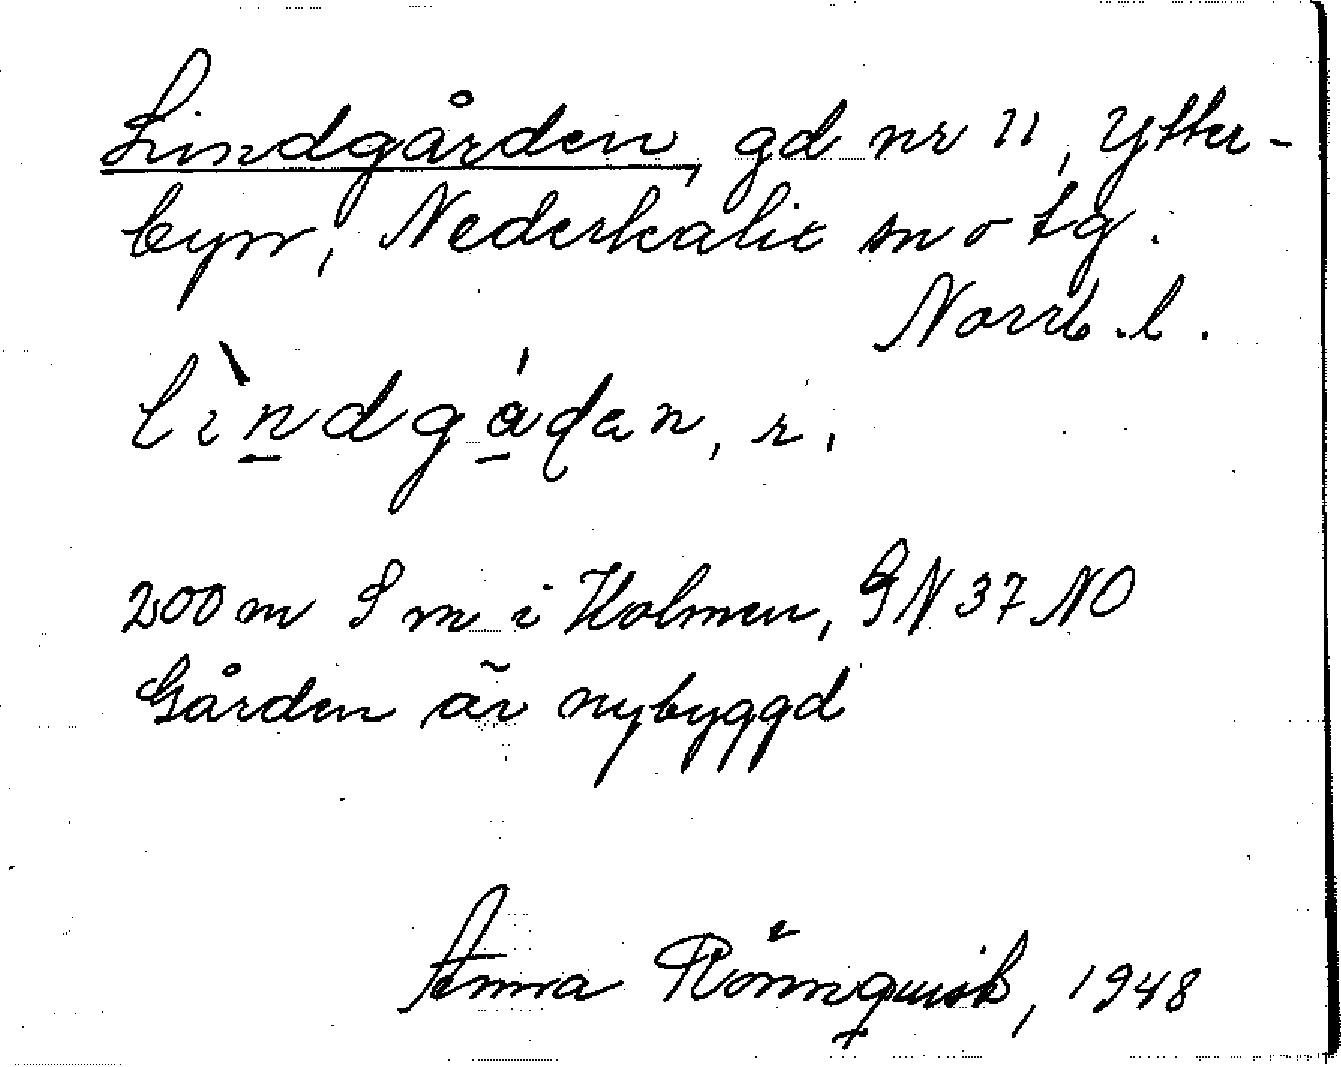 Lindgården, gd nr 11, Ytter-
byn, Nederkalix sn o tg.
Norrb. l.
lìndgáɖan, r.
200 m S m i Holmen, GN 37 NO
Gården är nybyggd
Anna Rönnquist, 1948